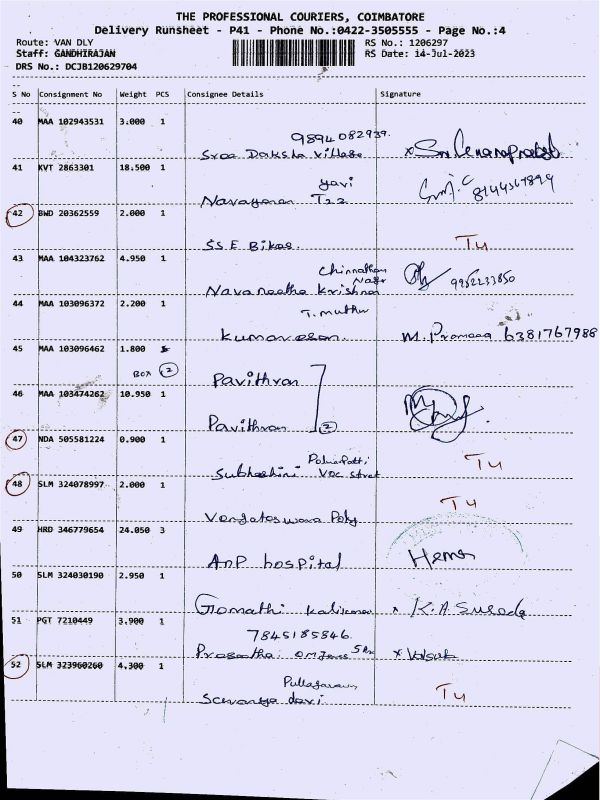 THE PROFESSIONAL COURIERS, COIMBATORE
Delivery Runsheet - P41 - Phone No.:0422-3505555 - Page No.:4
Route: VAN DLY RS No.: 1206297
Staff: GANDHIRAJAN RS Date: 14-Jul-2023
DRS No.: DCJB120629704
S No Consignment No Weight PCS Consignee Details Signature
40 MAA 102943531 3.000 1
9894082939.
Sree Daksha village
41 KVT 2863301 18.500 1
8144567899
Narayanan
42 BWD 20362559 2.000 1
SSE Bikes. TU
43 MAA 104323762 4.950 1
Chinnathan
Nagr 9952233850
Navaneetha Krishnan
44 MAA 103096372 2.200 1
T. muthu
Kumaresan. M. Prameea 6381767988
45 MAA 103096462 1.800
BOX 2 Pavithran
46 MAA 103474262 10.950 1
Pavithran 2
47 NDA 505581224 0.900 1
TU
Subhashini VOC Street
48 SLM 324078997 2.000 1
TU
Vengateswara Poly
49 HRD 346779654 24.050 3
ANP hospital Hema
50 SLM 324030190 2.950 1
Gomathi x K.A Sureda
51 PGT 7210449 3.900 1
7845185846
52 SLM 323960260 4.300 1
TU
Saranya devi